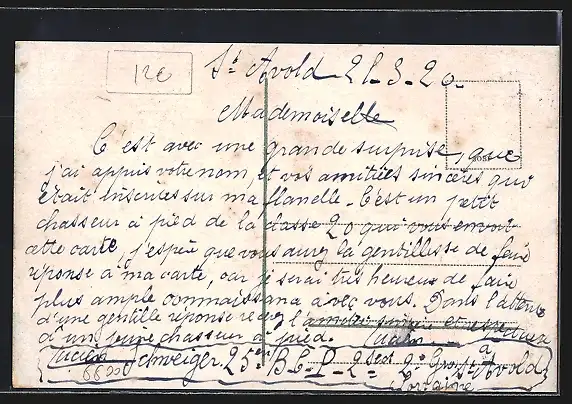 12€
St Avold 21-3-20.
Mademoiselle
C'est avec une grande surprise, que
j'ai appris votre nom, et vos amitiées sincères qui
était inscrites sur ma flanelle. C'est un petit
chasseur à pied de la classe 20 qui vous envoit
cette carte, j'espère que vous aurez la gentillesse de faire
réponse à ma carte, car je serai très heureux de faire
plus ample connaissana avec vous. Dans l'attente
d'une gentille réponse recevez l'amitié sincère et
d'un jeune chasseur à pied. Lucien
Lucien Schweiger. 25e B.C.P 2e St Avold
Lorraine